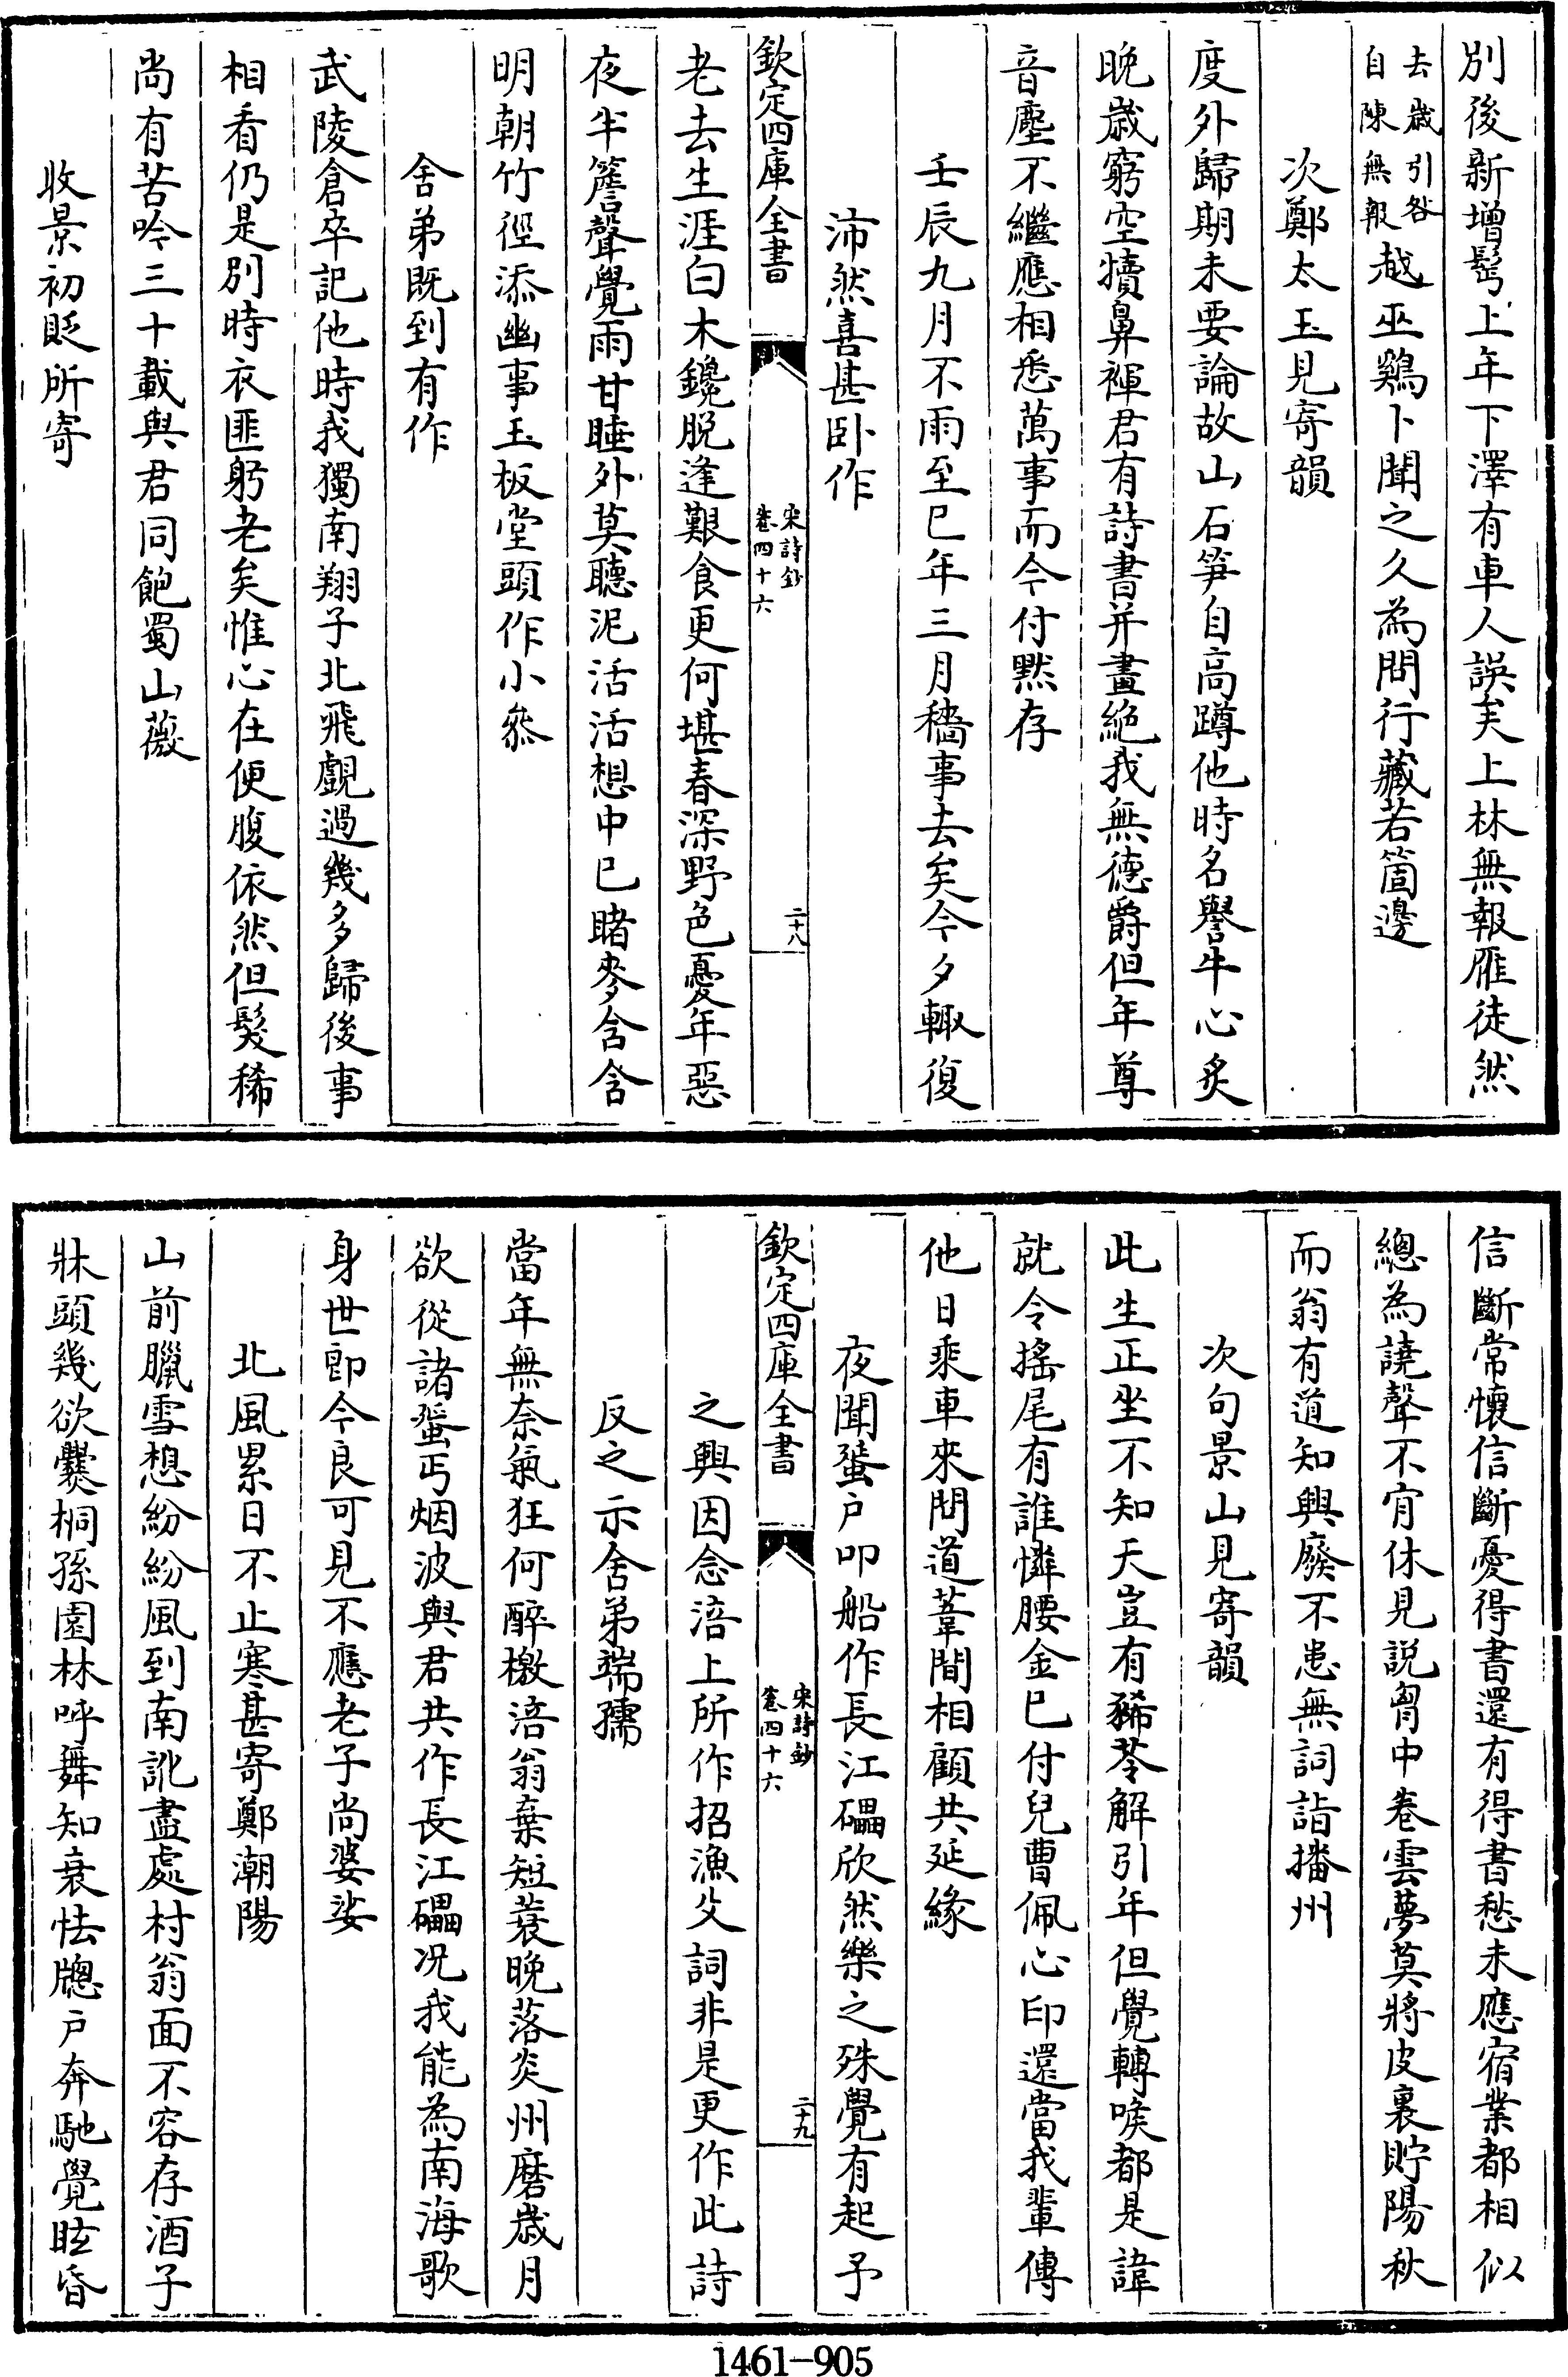 別後新增髩上年下澤有車人誤矣上林無報雁徒然
去歲引咎
自陳無報
越巫鷄卜聞之久為問行藏若箇邊
次鄭太玉見寄韻
度外歸期未要論故山石笋自高蹲他時名譽牛心炙
晚歲窮空犢鼻褌君有詩書并畫絶我無德爵但年尊
音塵不繼應相悉萬事而今付黙存
壬辰九月不雨至已年三月穡事去矣今夕輙復
沛然喜甚卧作
欽定四庫全書
宋詩鈔
卷四十六
二十八
老去生涯白木鑱脱逢艱食更何堪春深野色憂年惡
夜半簷聲覺雨甘睡外莫聽泥活活想中已睹麥含含
明朝竹徑添幽事玉板堂頭作小叅
舍弟既到有作
武陵倉卒記他時我獨南翔子北飛覰過幾多歸後事
相看仍是別時衣匪躬老矣惟心在便腹依然但髮稀
尚有苦吟三十載與君同飽蜀山薇
收景初貶所寄
信斷常懷信斷憂得書還有得書愁未應宿業都相似
總為譊聲不肯休見説胷中卷雲夢莫將皮裏貯陽秋
而翁有道知興廢不患無詞詣播州
次句景山見寄韻
此生正坐不知天豈有豨苓解引年但覺轉喉都是諱
就令搖尾有誰憐腰金已付兒曹佩心印還當我輩傳
他日乘車來問道葦間相顧共延緣
夜聞蜑户叩船作長江礧欣然樂之殊覺有起予
欽定四庫全書
宋詩鈔
卷四十六
二十九
之興因念涪上所作招漁父詞非是更作此詩
反之示舍弟端孺
當年無奈氣狂何醉檄涪翁棄短蓑晚落炎州磨歲月
欲從諸蜑丐烟波與君共作長江礧况我能為南海歌
身世即今良可見不應老子尚婆娑
北風累日不止寒甚寄鄭潮陽
山前臘雪想紛紛風到南訛盡處村翁面不容存酒子
牀頭幾欲爨桐孫園林呼舞知衰怯牕户奔馳覺眩昏
1461-905